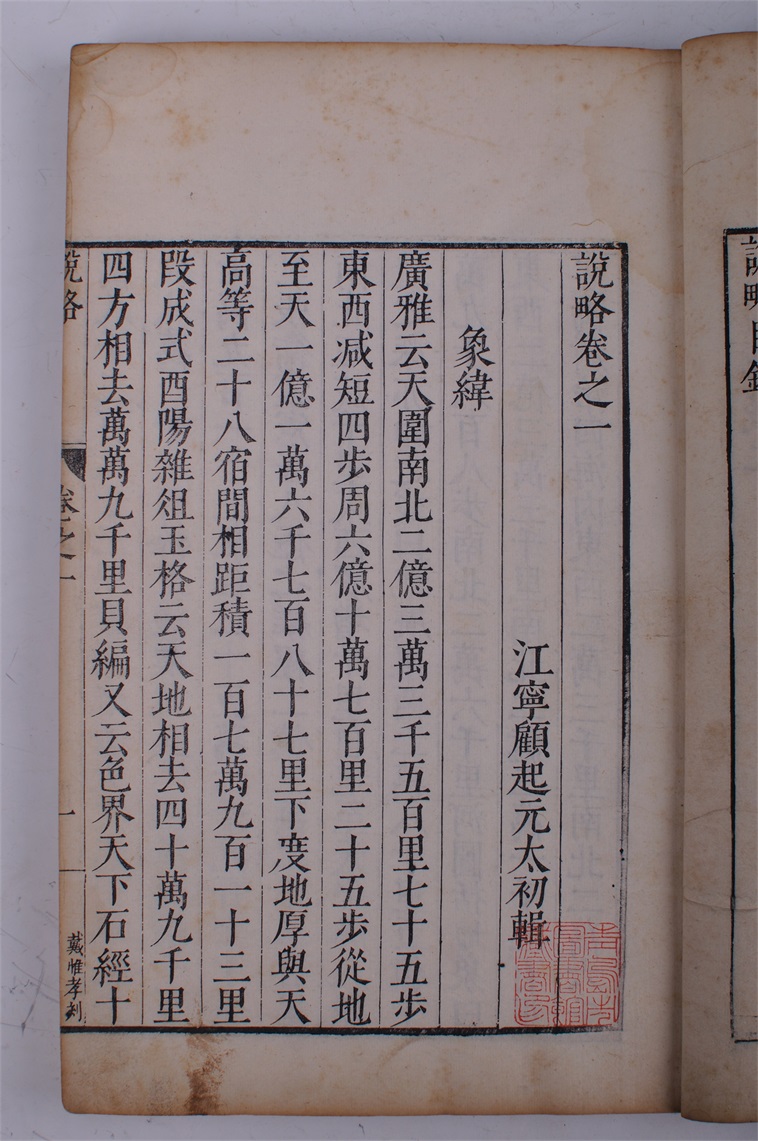 說略目錄
說略卷之一
江寧顧起元太初輯
象緯
廣雅云天圍南北二億三萬三千五百里七十五步
東西減短四步周六億十萬七百里二十五步從地
至天一億一萬六千七百八十七里下度地厚與天
高等二十八宿間相距積一百七萬九百一十三里
段成式酉陽雜俎玉格云天地相去四十萬九千里
四方相去萬萬九千里貝編又云色界天下石經十
說略
卷之一
一
戴惟孝刻